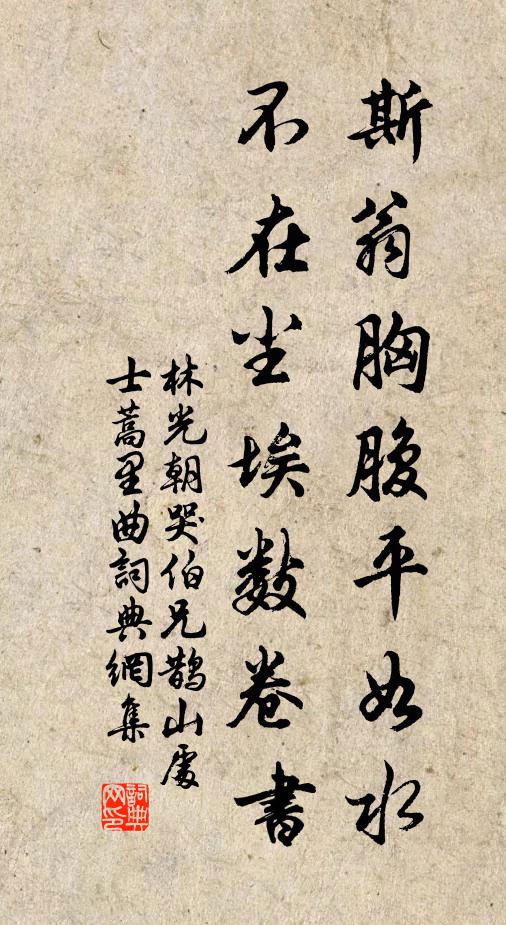 斯翁胸腹平如水
不在尘埃数卷书
林光朝哭伯兄鹊山處
士蒿里曲詞典網集
詞典
网印